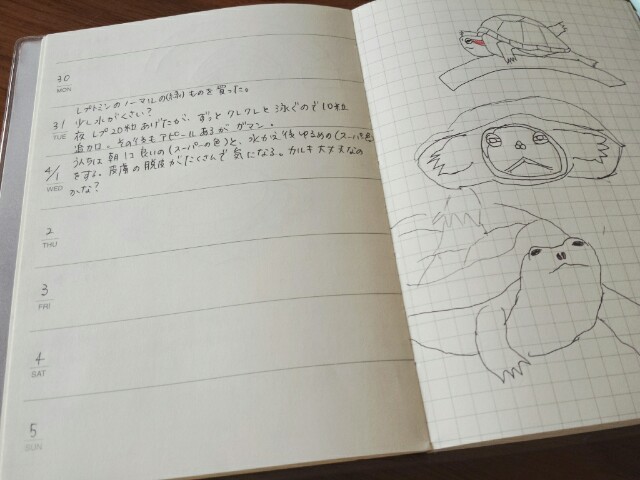 30
MON
レプトミンのノーマルの(緑)ものを買った。
少し水がくさい?
31
TUE
夜 レプ20粒あげたが、ずっとクレクレと泳ぐので10粒
追加。その後もアピールあるがガマン。
4/1
WED
うんちは朝に良いの(スーパーの色)と、水かえ後ゆるめの(スーパー色)
をする。皮膚の脱皮がたくさんで気になる。カルキ大丈夫なの
かな?
2
THU
3
FRI
4
SAT
5
SUN